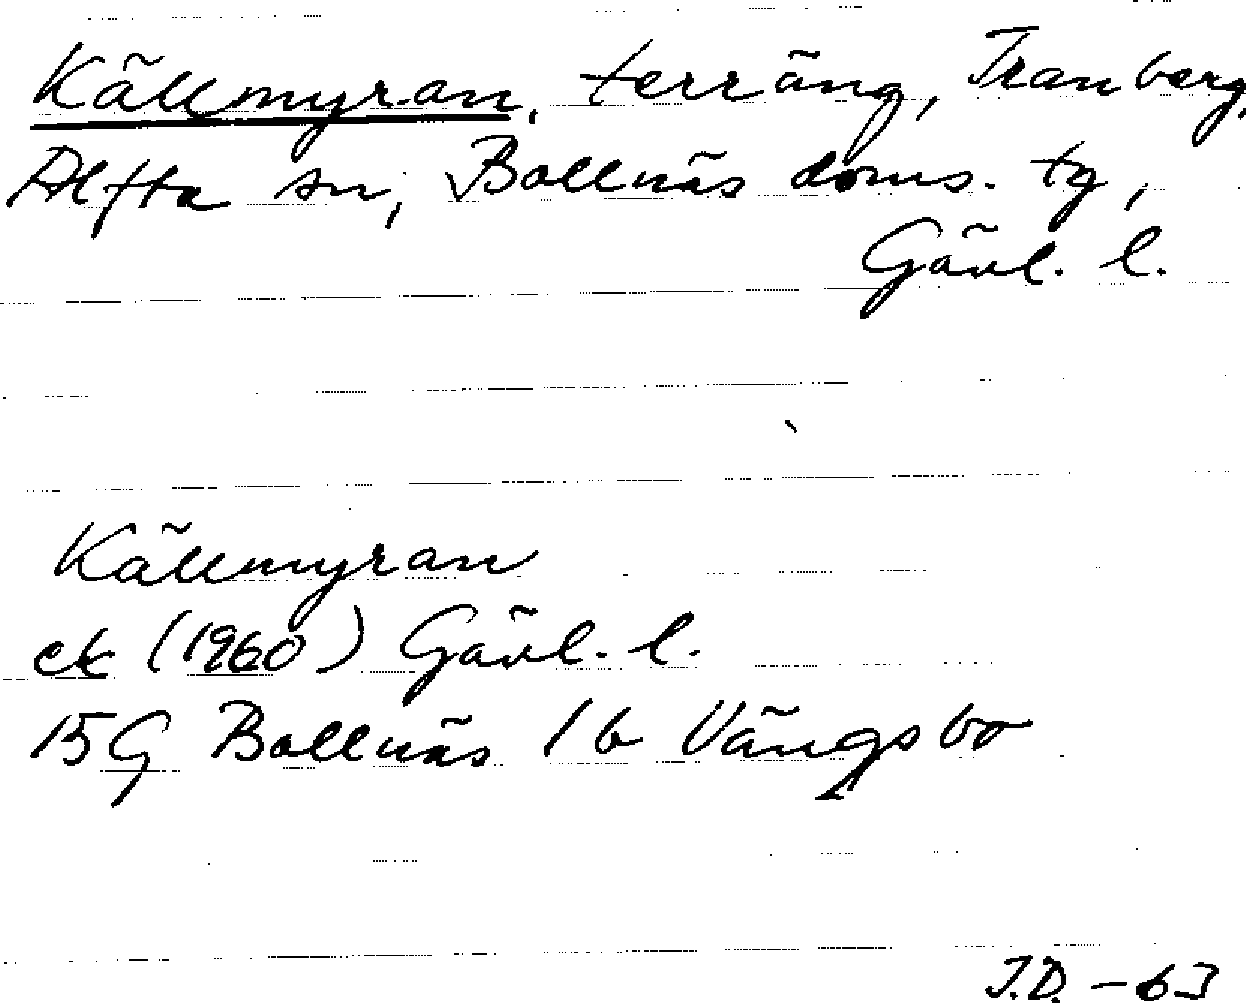 Källmyran, terräng, Tranberg,
Alfta sn, Bollnäs doms. tg,
Gävl. l.
Källmyran
ek (1960) Gävl. l.
15G Bollnäs 1b Vängsbo
J.D. - 63